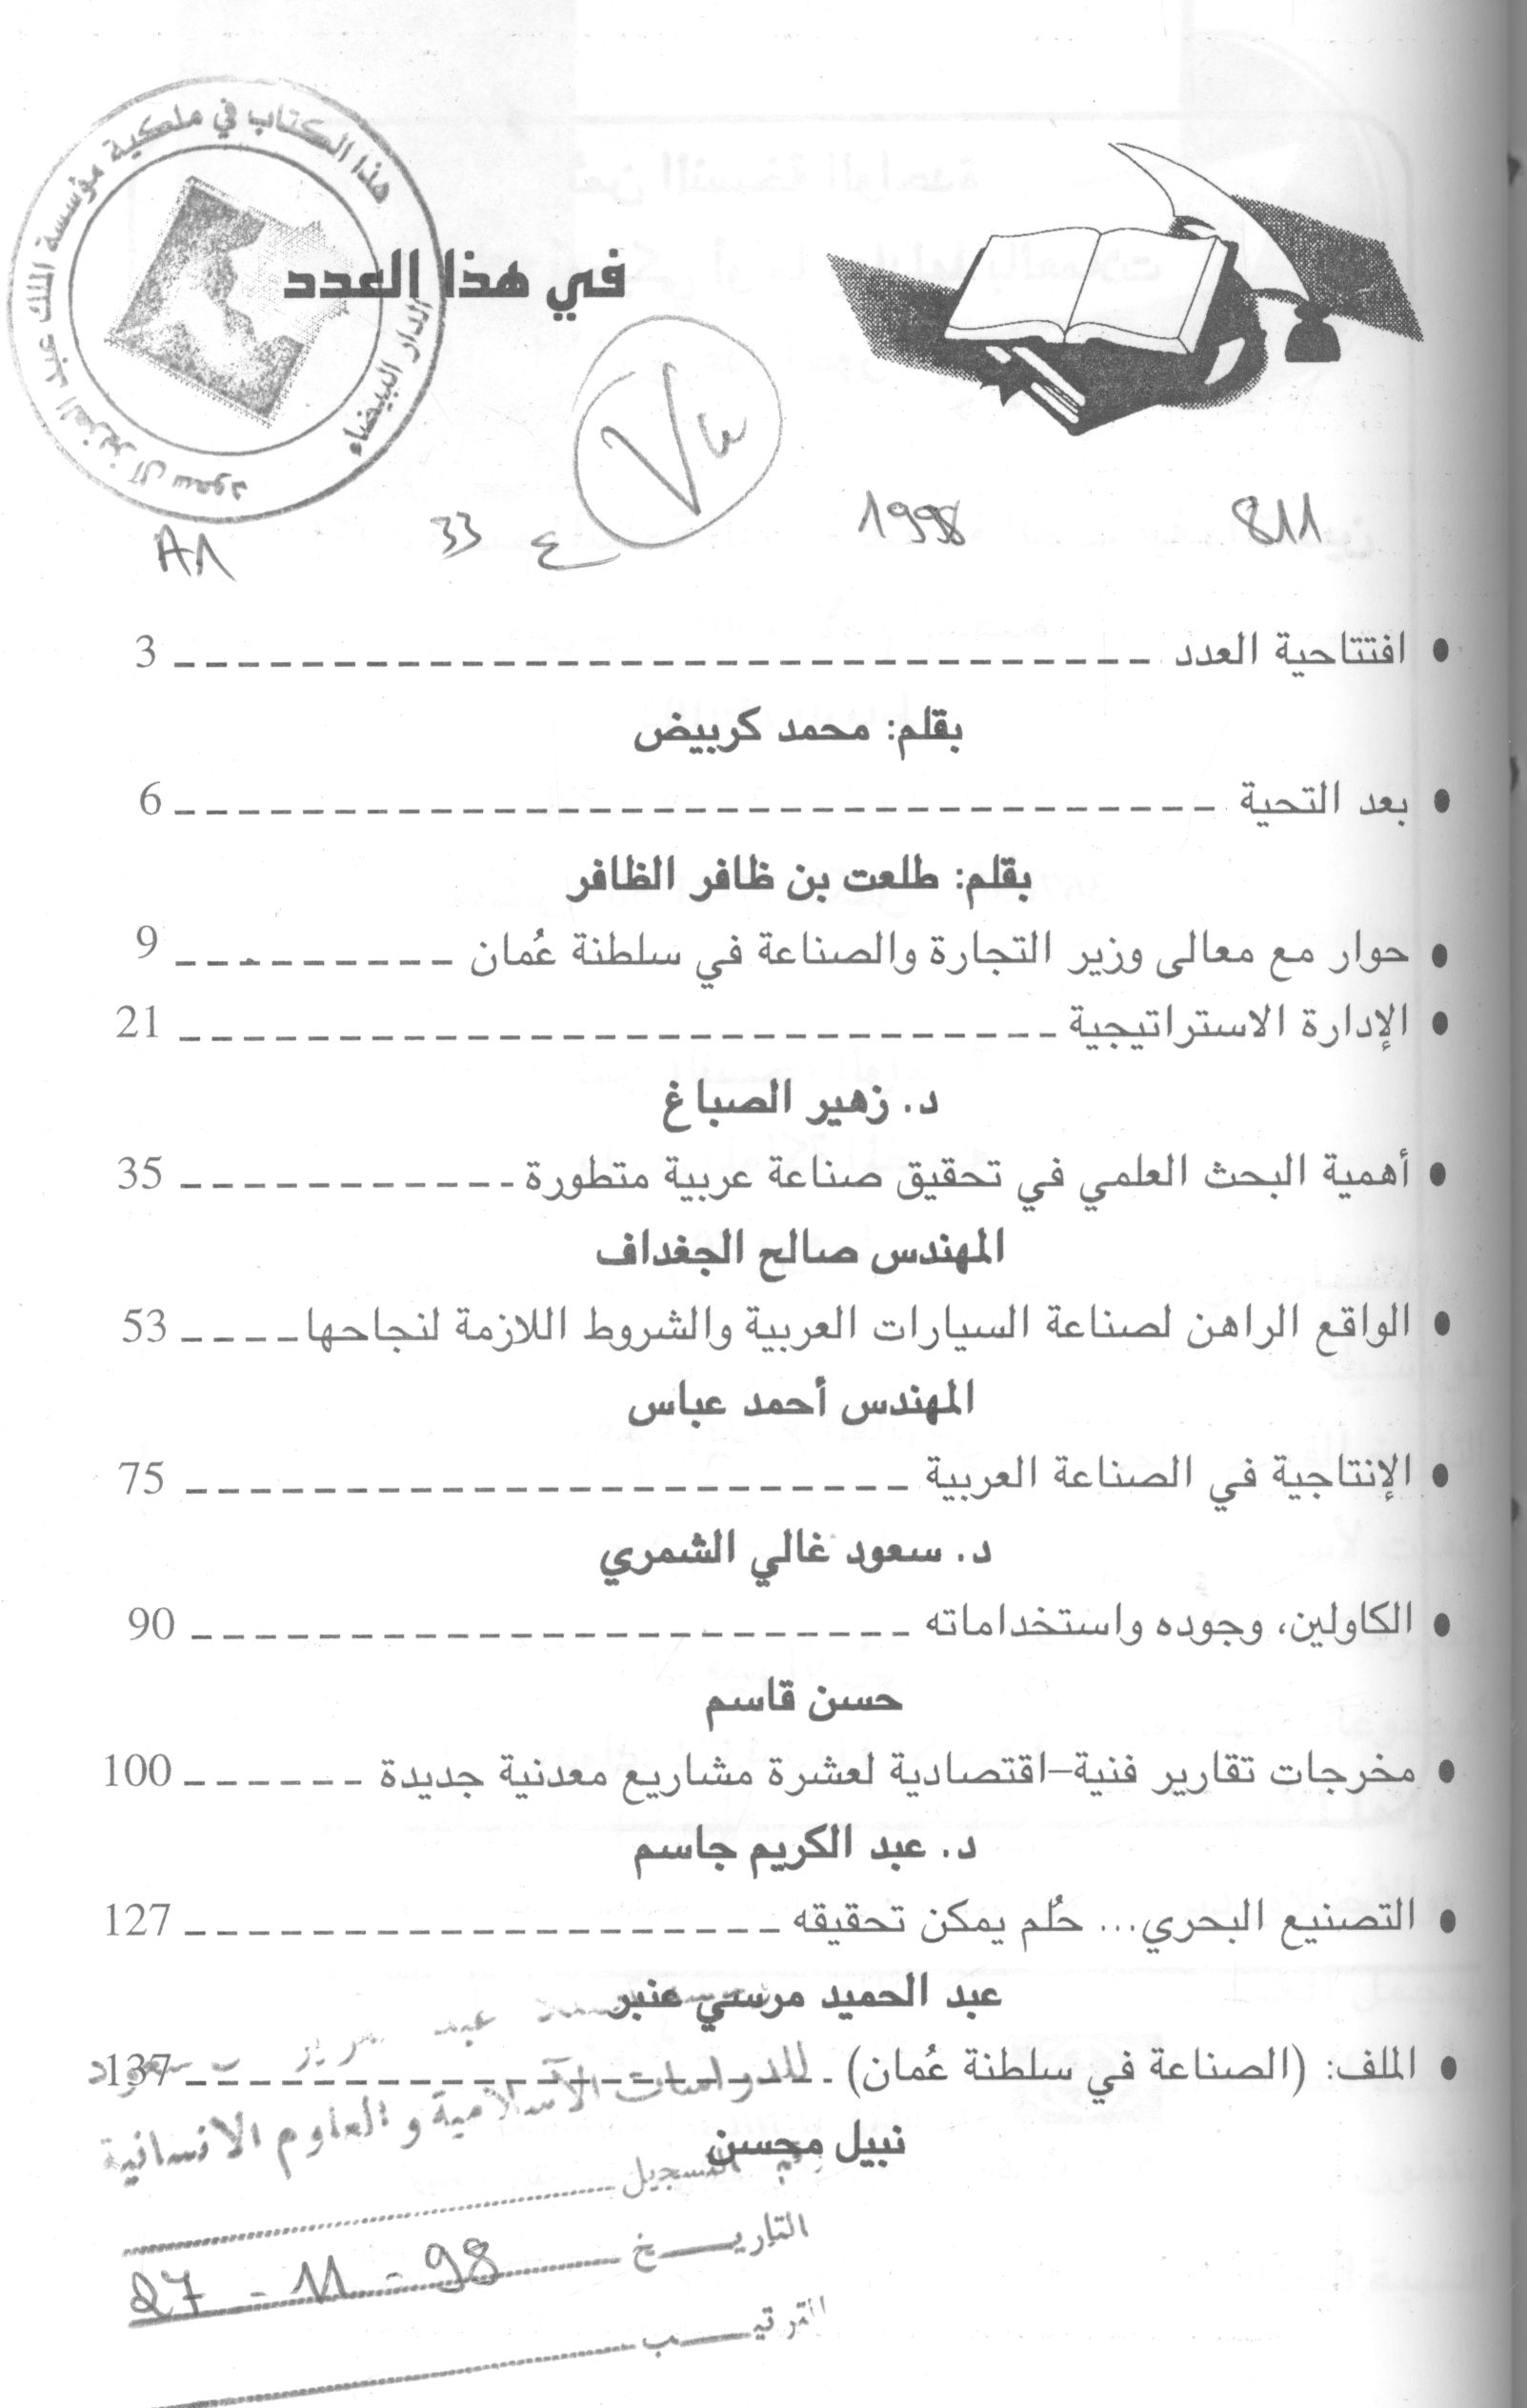 هذا الكتاب في ملكية مؤسسة الملك عبد العزيز آل سعود
الدار البيضاء
في هذا العدد
811
1998
ع 33
A1
• افتتاحية العدد 3
بقلم: محمد كربيض
• بعد التحية 6
بقلم: طلعت بن ظافر الظافر
• حوار مع معالى وزير التجارة والصناعة في سلطنة عُمان 9
• الإدارة الاستراتيجية 21
د. زهير الصباغ
• أهمية البحث العلمي في تحقيق صناعة عربية متطورة 35
المهندس صالح الجغداف
• الواقع الراهن لصناعة السيارات العربية والشروط اللازمة لنجاحها 53
المهندس أحمد عباس
• الإنتاجية في الصناعة العربية 75
د. سعود غالي الشمري
• الكاولين، وجوده واستخداماته 90
حسن قاسم
• مخرجات تقارير فنية-اقتصادية لعشرة مشاريع معدنية جديدة 100
د. عبد الكريم جاسم
• التصنيع البحري... حُلم يمكن تحقيقه 127
عبد الحميد مرسي عنبر
• الملف: (الصناعة في سلطنة عُمان) 137
نبيل محسن
عبد سعود
للدراسات الآسلامية والعلوم الانسانية
التسجيل
التاريخ 27 - 11 - 98
الترتيب